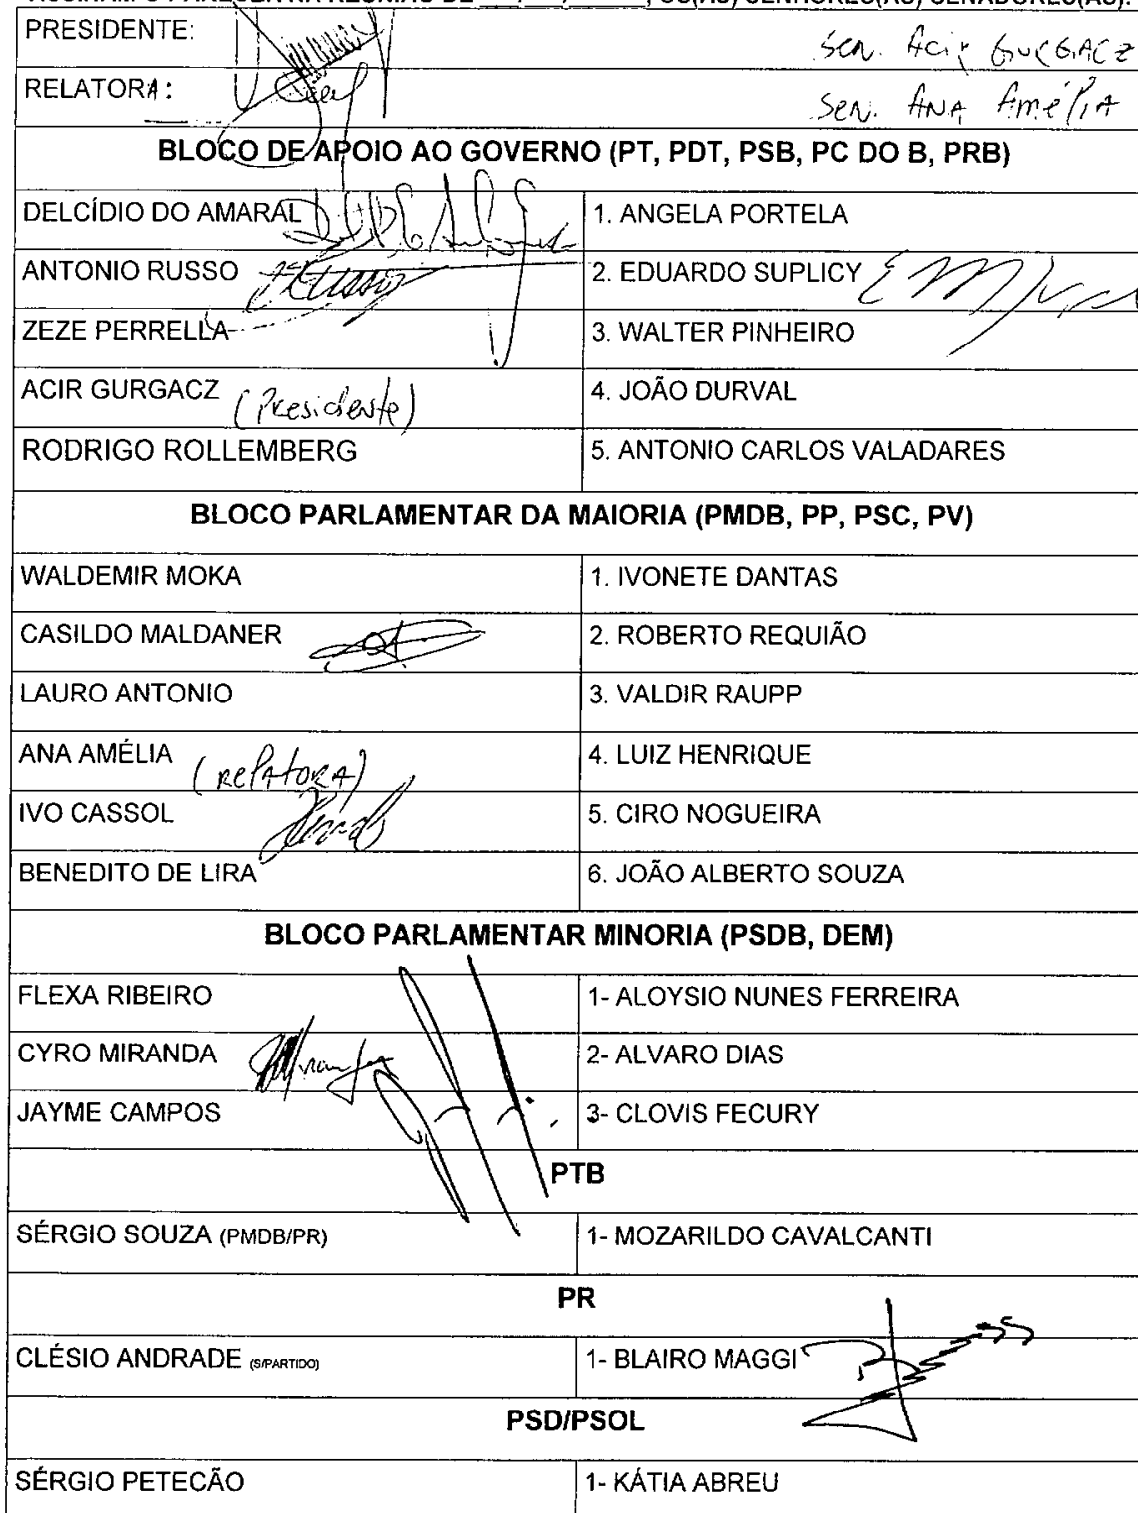 PRESIDENTE: Sen. Acir GURGACZ
RELATORA: Sen. ANA Amélia
BLOCO DE APOIO AO GOVERNO (PT, PDT, PSB, PC DO B, PRB)
DELCÍDIO DO AMARAL 1. ANGELA PORTELA
ANTONIO RUSSO 2. EDUARDO SUPLICY
ZEZE PERRELLA 3. WALTER PINHEIRO
ACIR GURGACZ (Presidente) 4. JOÃO DURVAL
RODRIGO ROLLEMBERG 5. ANTONIO CARLOS VALADARES
BLOCO PARLAMENTAR DA MAIORIA (PMDB, PP, PSC, PV)
WALDEMIR MOKA 1. IVONETE DANTAS
CASILDO MALDANER 2. ROBERTO REQUIÃO
LAURO ANTONIO 3. VALDIR RAUPP
ANA AMÉLIA (RelAtORA) 4. LUIZ HENRIQUE
IVO CASSOL 5. CIRO NOGUEIRA
BENEDITO DE LIRA 6. JOÃO ALBERTO SOUZA
BLOCO PARLAMENTAR MINORIA (PSDB, DEM)
FLEXA RIBEIRO 1- ALOYSIO NUNES FERREIRA
CYRO MIRANDA 2- ALVARO DIAS
JAYME CAMPOS 3- CLOVIS FECURY
PTB
SÉRGIO SOUZA (PMDB/PR) 1- MOZARILDO CAVALCANTI
PR
CLÉSIO ANDRADE (S/PARTIDO) 1- BLAIRO MAGGI
PSD/PSOL
SÉRGIO PETECÃO 1- KÁTIA ABREU